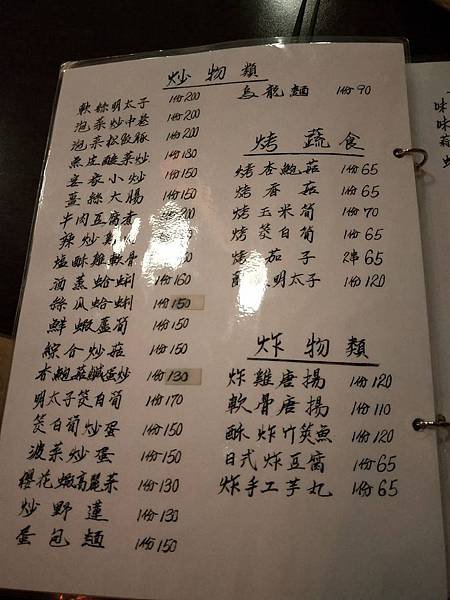 炒物類
軟絲明太子 1份200
泡菜炒中卷 1份200
泡菜松阪豚 1份200
魚皮酸菜炒 1份180
客家小炒 1份150
薑絲大腸 1份150
牛肉豆腐煮 1份200
辣炒
塩酥雞軟骨 1份
酒蒸蛤蜊 1份160
絲瓜蛤蜊 1份150
鮮蝦蘆筍 1份150
綜合炒菇 1份150
杏鮑菇鹹蛋炒 1份130
明太子筊白筍 1份170
筊白筍炒蛋 1份150
菠菜炒蛋 1份150
櫻花蝦高麗菜 1份130
炒野蓮 1份130
蛋包麵 1份150
烏龍麵 1份90
烤蔬食
烤杏鮑菇 1份65
烤香菇 1份65
烤玉米筍 1份70
烤筊白筍 1份65
烤茄子 2串65
明太子 1份120
炸物類
炸雞唐揚 1份120
軟骨唐揚 1份110
酥炸竹筴魚 1份120
日式炸豆腐 1份65
炸手工芋丸 1份65
味
味